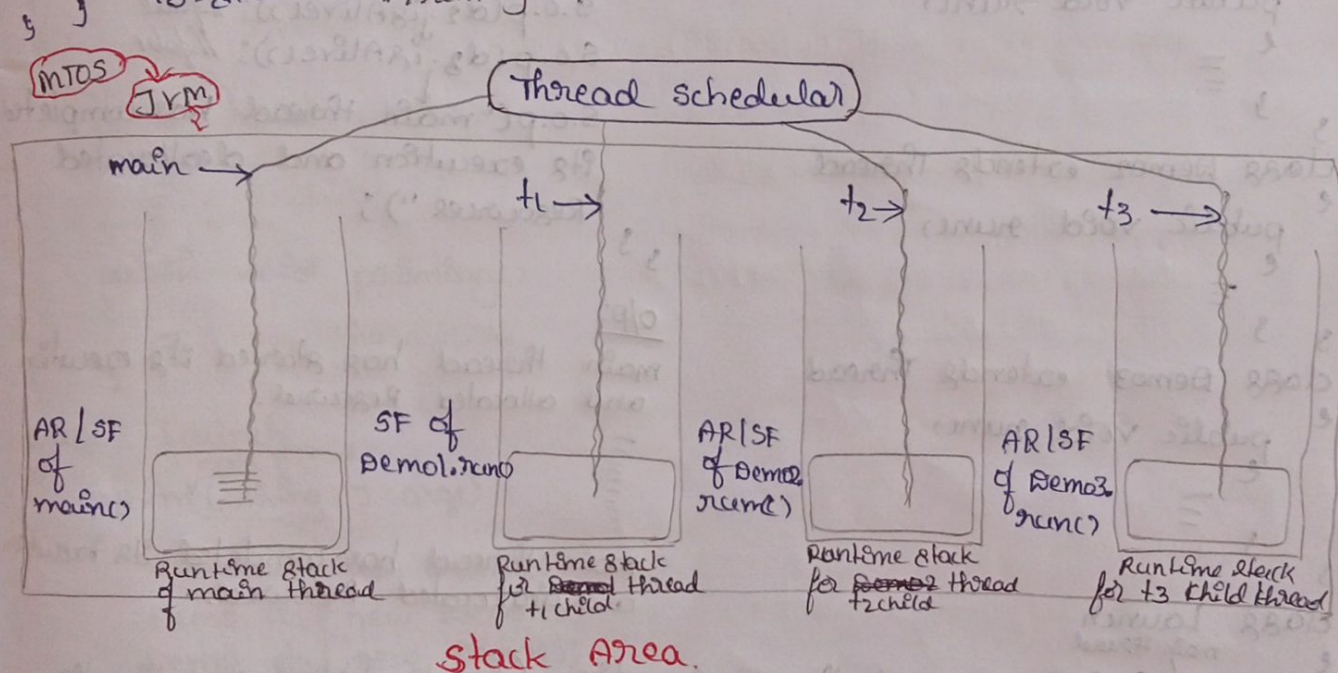 MTOS
Jvm
Thread schedular
main →
t1 →
t2 →
t3 →
AR / SF
of
main()
SF of
Demo1.run()
AR/SF
of Demo2
run()
AR/SF
of Demo3.
run()
Runtime stack
of main thread
Runtime stack
for thread
t1 child
Runtime stack
for Demo2 thread
t2 child
Runtime stack
for t3 child thread
Stack Area.